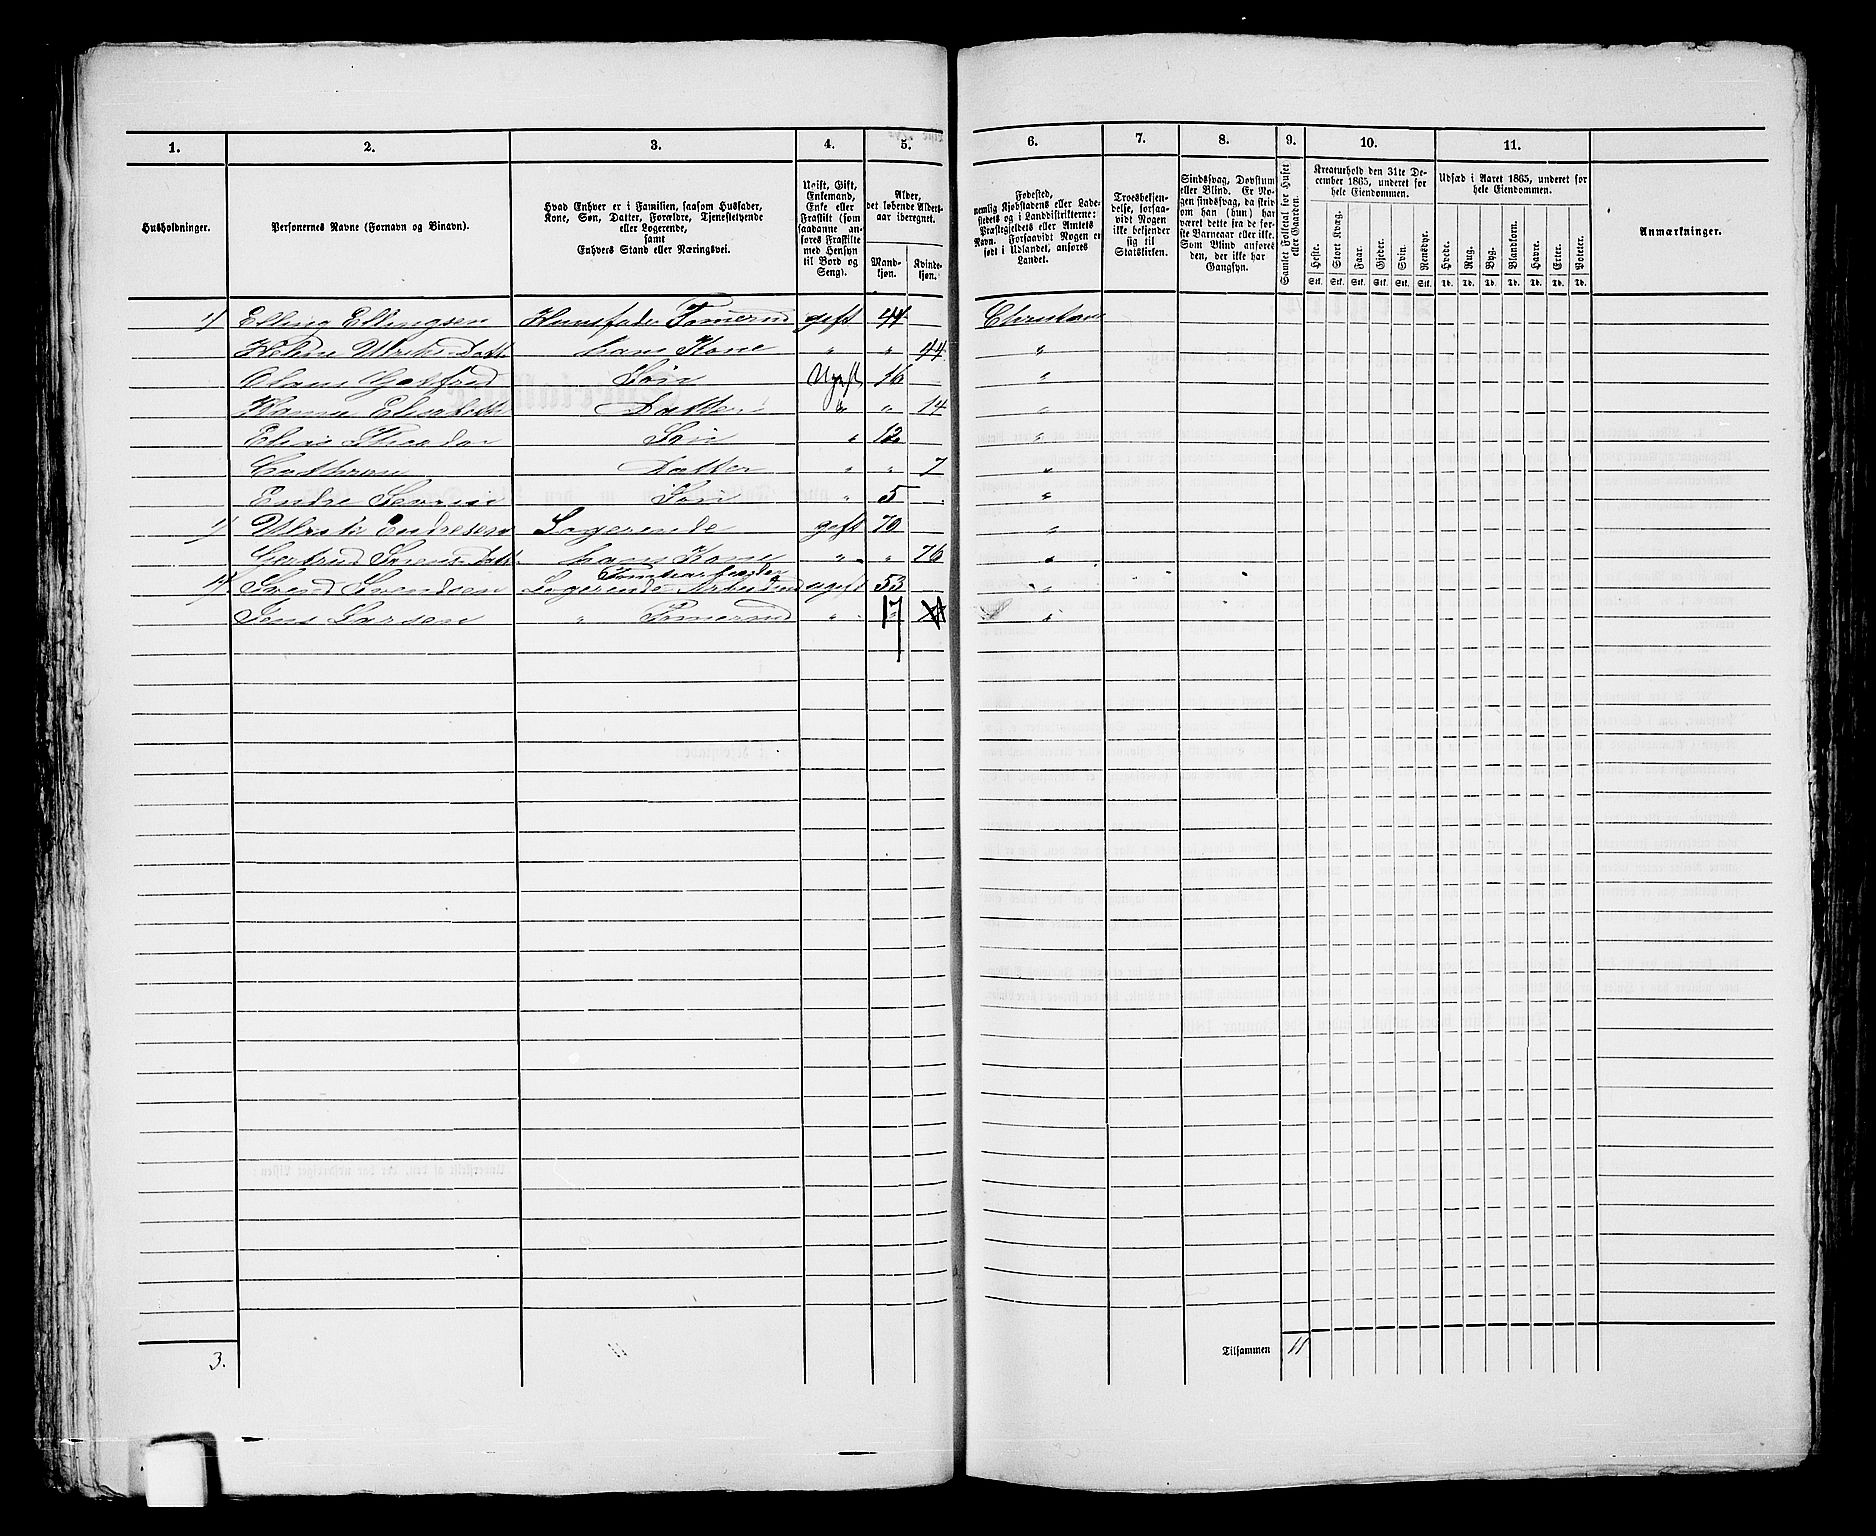 1. 2. 3. 4. 5. 6. 7. 8. 9. 10. 11.
Husholdninger.
Personernes Navne (Fornavn og Binavn).
Hvad Enhver er i Familien, saasom Husfader,
Kone, Søn, Datter, Forældre, Tjenestetyende
eller Logerende,
samt
Enhvers Stand eller Næringsvei.
Ugift, Gift,
Enkemand,
Enke eller
Fraskilt (som
saadanne an-
føres Fraskilte
med Hensyn
til Bord og
Seng).
Alder,
det løbende Alders-
aar iberegnet.
Mand-
kjøn.
Kvinde-
kjøn.
Fødested,
nemlig Kjøbstadens eller Lade-
stedets og i Landdistrikterne:
Præstegjeldets eller Amtets
Navn. Forsaavidt Nogen er
født i Udlandet, anføres
Landet.
Troesbekjen-
delse, forsaa-
vidt Nogen
ikke bekjender
sig til
Statskirken.
Sindssvag, Døvstum
eller Blind. Er No-
gen sindssvag, da skriv
om han (hun) har
været dette fra de før-
ste Barneaar eller ikke.
Som Blind anføres
den, der ikke har
Gangsyn.
Samlet Folketal for Huset
eller Gaarden.
Kreaturhold den 31te De-
cember 1865, underet for
hele Eiendommen.
Heste. Stort Kvæg. Faar. Gjeder. Svin. Rensdyr.
Stk. Stk. Stk. Stk. Stk. Stk.
Udsæd i Aaret 1865, underet for
hele Eiendommen.
Hvede. Rug. Byg. Blandkorn. Havre. Erter. Poteter.
Td. Td. Td. Td. Td. Td. Td.
Anmærkninger.
1/ Elling Ellingsen Huusfader Tømmermd gift 44
Helene Ulriks Datt hans Kone " " 44 "
Gotfred Søn Ugift 16 "
Hanne Elisabeth Datter " " 14 "
Elias Theodor Søn " 12 "
Cathrine Datter " " 7 "
Endre Søn " 5 "
1/ Ulrik Endresen Logerende gift 70 "
Gertrud Datt hans Kone " " 76 "
1/ Svend Svendsen Logerende ugift 53 "
Jens Larsen " Tømmermd " 17 "
3.
Tilsammen 11